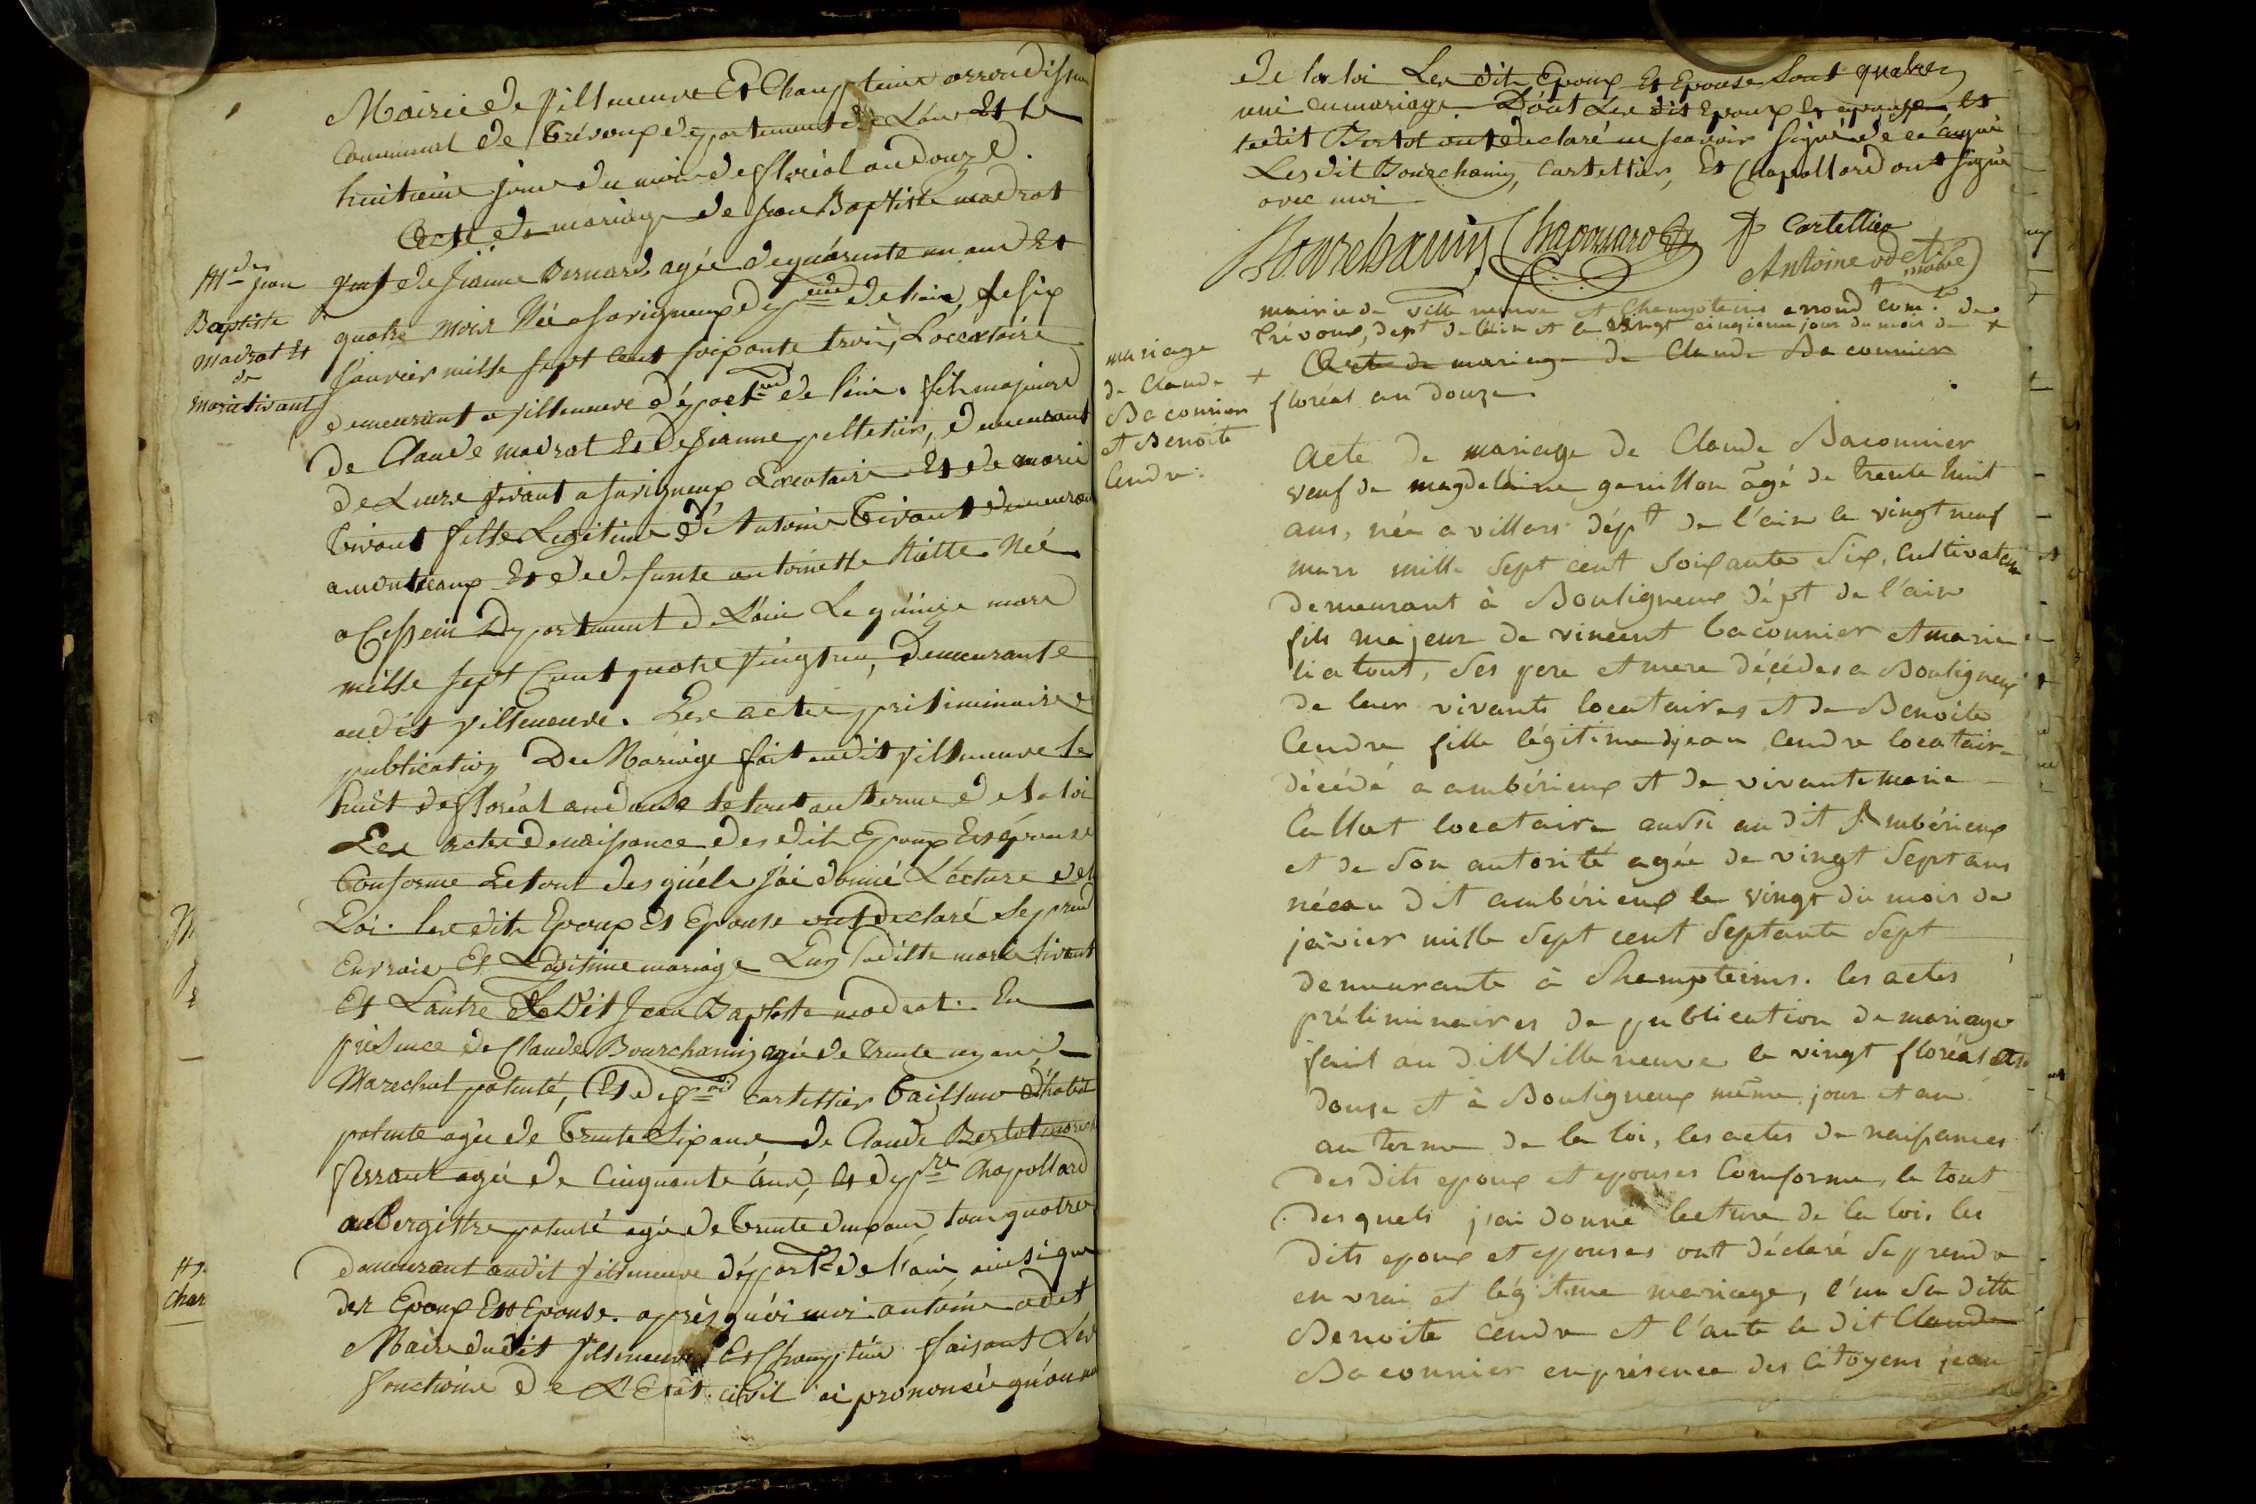 Mairie de Villeneuve Et Champteins arrondissem
Communal de Trévoux departement de L'ain Et le
huitieme jour du mois de floréal an Douze.
Acte de mariage de Jean Baptiste madrat
Mde Jean
Baptiste
madrat Et
de
marie tivant
veuf de Jeanne Bernard, agée de quarente un ans Et
quatre mois Née a Savigneux dept de l'ain, le six
Janvier mille sept cent soixante trois, Loccataire
demeurant a Villeneuve départ de l'ain. fils majeure
de Claude madrat Et de Jeanne pelletier, demeurant
de Leurs vivant a Savigneux Locataire Et de marie
Tivant fille Legitime d'Antoine Tivant demeurant
a montceaux Et de defunte antoinette Née
a Cesseins Departement de L'ain Le quinze mars
mille sept Cent quatre vingt un, Demeurante
audit Villeneuve. Les actes priliminaire
publication De Mariage fait audit Villeneuve le
huit de floréal an douse le tout au terme de la loi
Les actes de naissance des dits Epoux Et épouse
Conforme Le tout des quéls j'ai donné L'écture de la
Loi. les dits Epoux Et Epouse ont declaré se prendre
En vraie Et Legitime mariage L'un laditte marie tivant
Et L'autre Le Dit Jean Baptiste madrat. En
présence de Claude Bourchanin agée de trente un ans
Marechal patenté, Et de cartellier Tailleur d'habit
patente agée de Trente Six ans de Claude Bertet
ferrant agée de Cinquante ans, Et de pre Chapollard
aubergiste patenté agée de Trente deux ans, tous quatre
demeurant audit Villeneuve départt de l'ain, ainsi que
des Epoux Et Epouse. après quoi moi antoine odet
Maire dudit Villeneuve Et Champtein faisant Les
fonctions de L'Etat. civil ai prononcée qu'au nom
de la loi Les dits Epoux Et Epouse Sont
uni en mariage. Dont Les dit Epoux Et épouse et
ledit Bertot ont declaré ne scavoir signé de ce
Les dit Bourchanin, Cartellier, Et Chapollard ont signé
avec moi
Bourchanin Chapollard P Cartellier
Antoine odet
maire
mairie de Ville neuve et Champteins arrond.t com.l de
Trévoux, dept de l'ain et le vingt cinqieme jour du mois de +
mariage
de Claude
Baconnier
et Benoite
Cendre.
Acte de mariage de Claude Baconnier
+ floréal an douze
Acte de mariage de Claude Baconnier
veuf de magdelaine genillon âgé de trente huit
ans, née a villars dépt de l'ain le vingt neuf
mars mille Sept cent Soixante Six, Cultivateur
demeurant à Bouligneux dépt de l'ain
fils majeur de vincent baconnier et marie
liatout, Ses pere et mere décédes a Bouligneux
de leur vivants locataires et de Benoite
Cendre fille légitime djean Cendre locataire
décédé a ambérieux et de vivante marie
Callot locataire aussi au dit Ambérieux
et de Son autorité agée de vingt Sept ans
née au dit ambérieux le vingt du mois de
javier mille Sept cent Septante Sept
demeurante à Champteins. les actes
préliminaires de publication de mariage
fait au dit Ville neuve le vingt floréal an
douse et à Bouligneux même jour et an
au terme de la loi, les actes de naissances
des dits epoux et epouses Comforme, le tout
des quels j'ai donné lecture de la loi. les
dits epoux et epouses ont déclaré Se prendre
en vrai et légitime mariage, l'un Sa ditte
Benoite Cendre et l'autre le dit Claude
Baconnier en présence des Citoyens jean